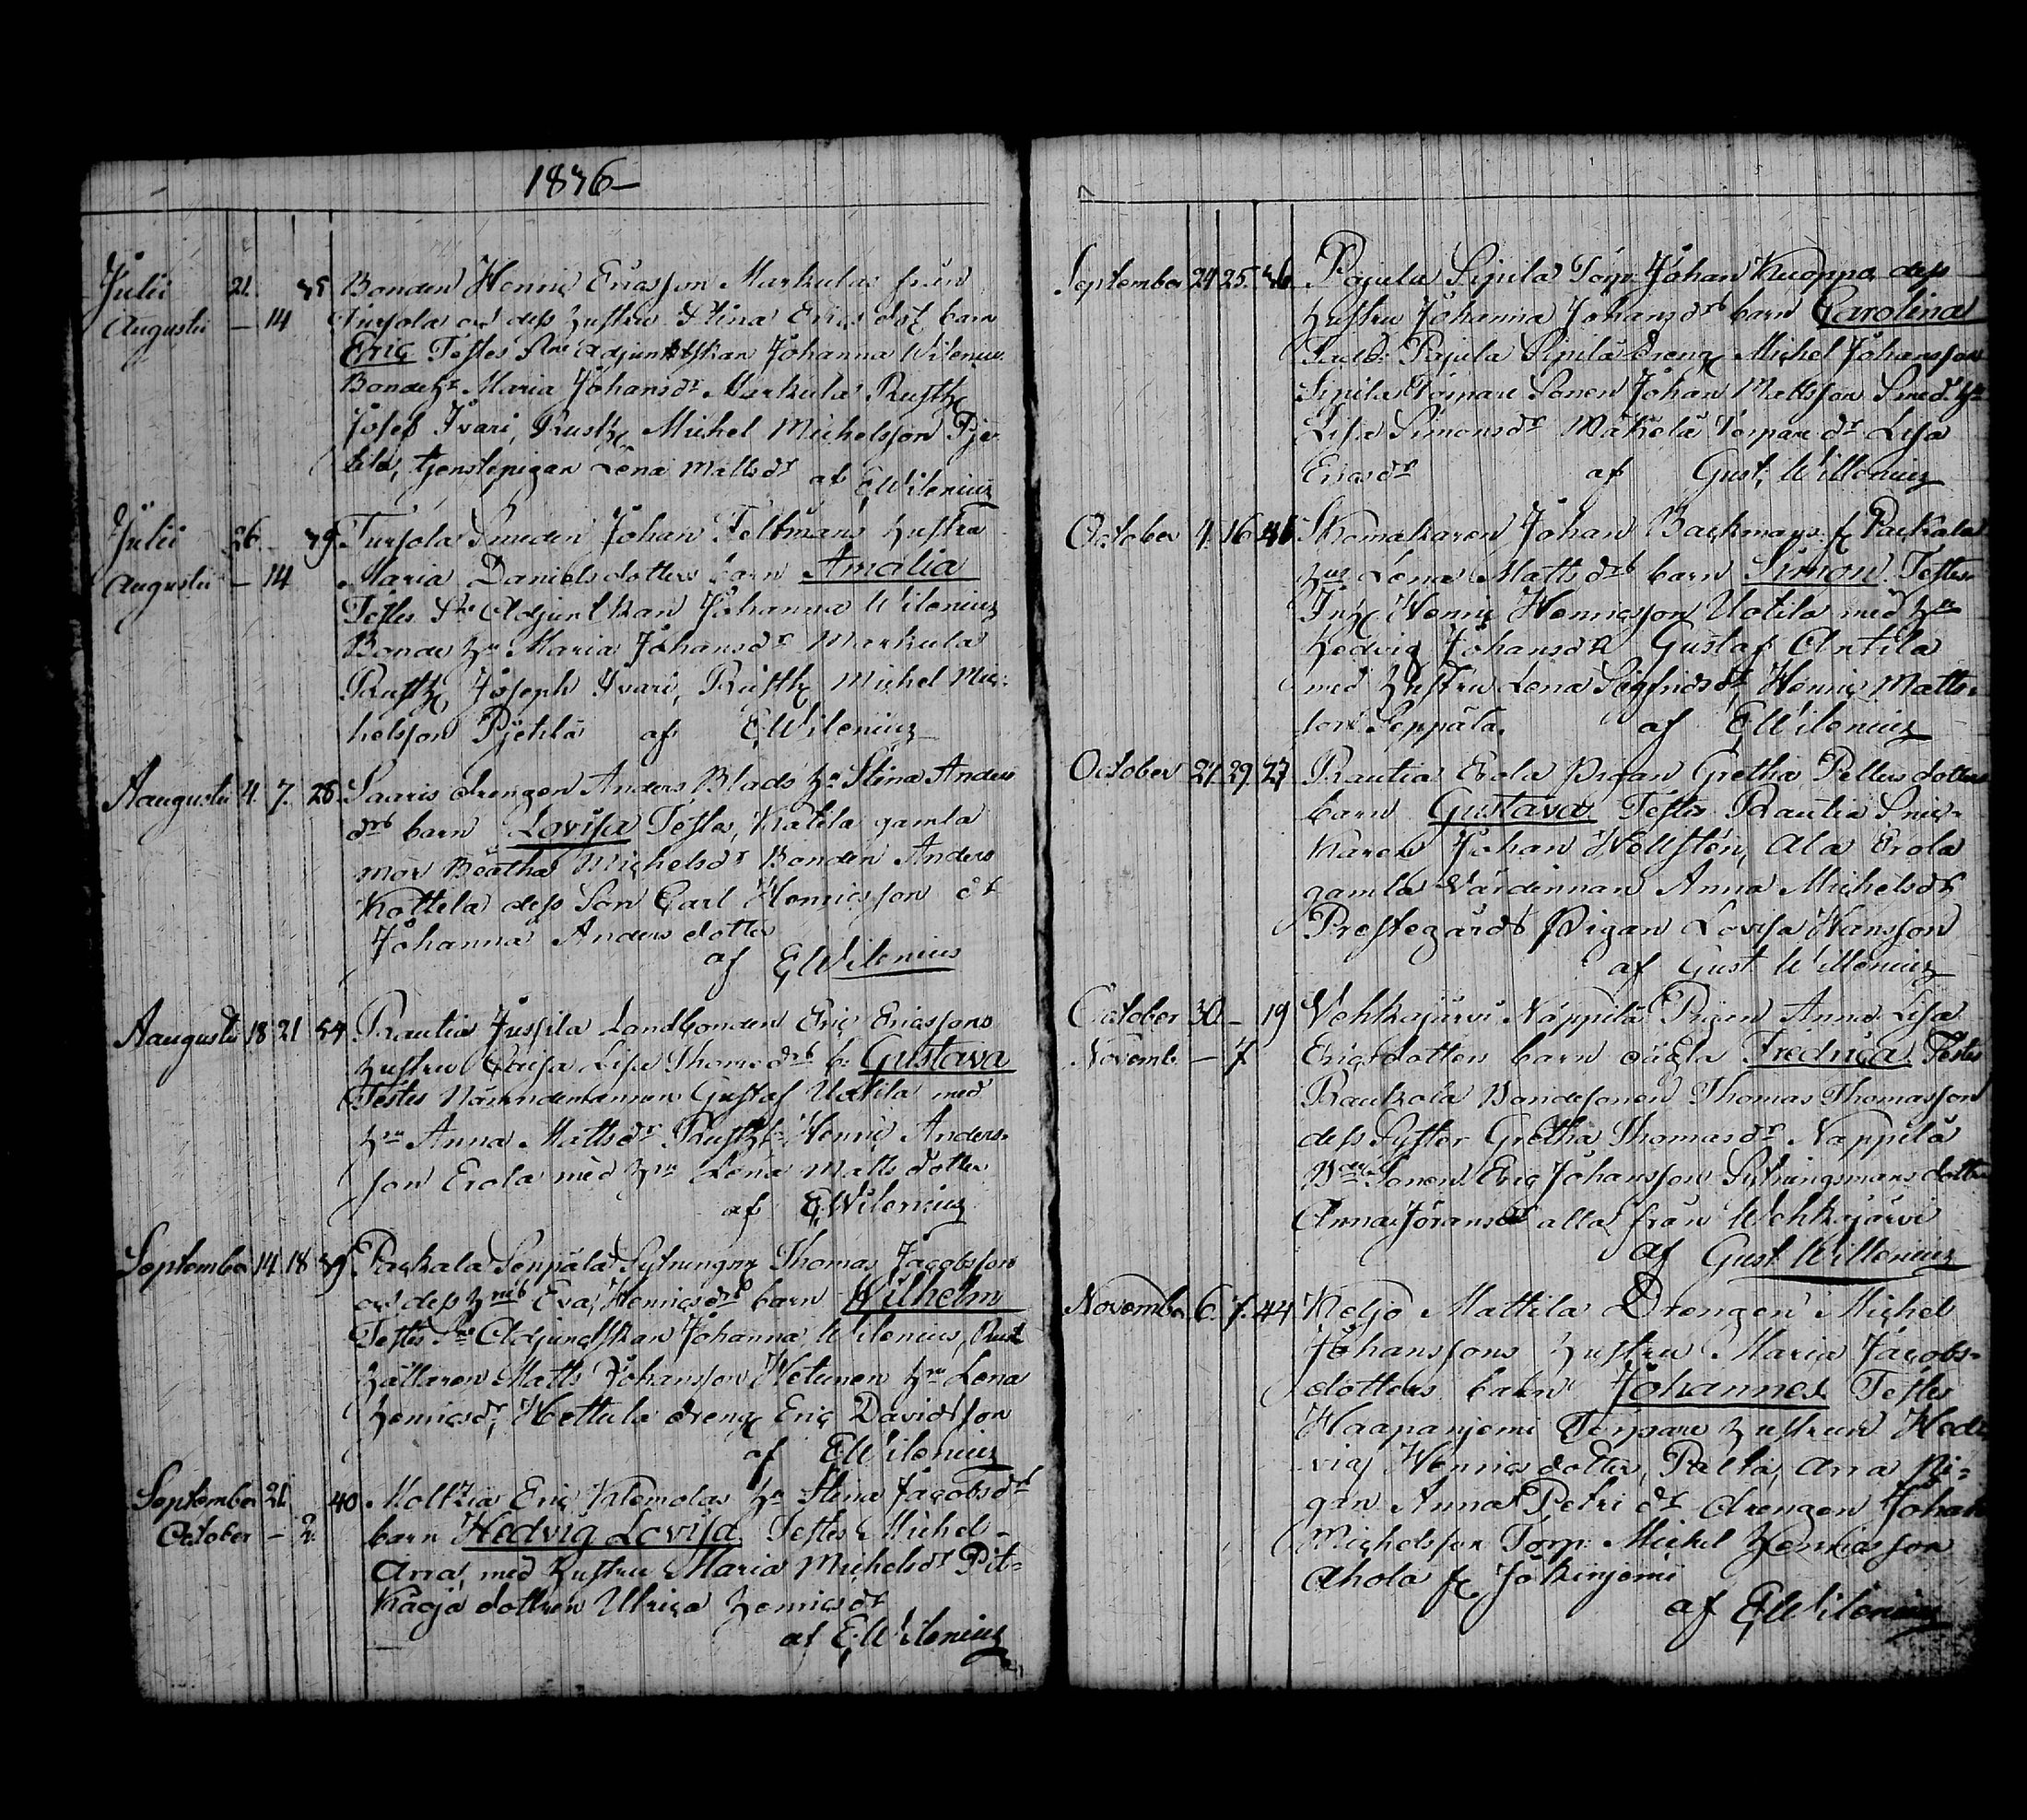 1836
Julii 21. 35 Bonden Henric Ericsson Markulas från
Augustii – 14 Turjola och dess hustru Stina Erics dotr barn
Eric Testes Fru Adjunktskan Johanna Wilenius
Bondehu Maria Johansdr Markula Rusth
Josef Ivari, Rusth Michel Michelsson Pje-
tilä, tjenstepigan Lena Mattsdr af E Wilenius
Julii 26. 39 Turjola Smeden Johan Feltmans hustru
Augustii – 14 Maria Danielsdotters barn Amalia
Testes Fru Adjunktskan Johanna Wilenius
Bonde hu Maria Johansdr Markula
Rusth Joseph Ivari, Rusth Michel Mic-
helsson Pjetilä af E Wilenius
Augustii 4. 7. 28. Saaris drengen Anders Blads hu Stina Anders
drs barn Lovisa Testes, Katila gamla
mor Beatha Michelsdr Bonden Anders
Kottela dess Son Carl Henricsson dr
Johanna Anders dotter
af E Wilenius
Augustii 18 21 34 Rautia Jussila Landbonden Eric Ericssons
hustru Caisa Lisa Thomedrs b: Gustava
Testes Nämndemannen Gustaf Uotila med
hu Anna Mattsdr Rusth Henric Anders-
son Erola med hu Lena Matts dotter
af E Wilenius
September 14. 18 39 Packala Seppälä Sytningsm Thomas Jacobsson
och dess hus Eva Henricsdrs barn Wilhelm
Testes Fru Adjunctskan Johanna Wilenius, Rust
hållaren Matts Johansson Wetunen hu Lena
Henricsdr, Hettula dreng Eric Davidsson
af E Wilenius
September 21. 40 Moltzia Eric Klemolas hu Stina Jacobsdr
October – 2. barn Hedvig Lovisa. Testes Michel
Arra med hustru Maria Michelsdr Pit-
käoja dottren Ulrica Henricsdr
af E Wilenius
September 24 25. 36 Pajula Sipila Torp. Johan Kuoppa dess
hustru Johanna Johansdrs barn Carolina
Pajula Sipilä dreng Michel Johansson
Sipila Torpare Sonen Johan Mattsson Smed. hu
Lisa Simonsdr Mäkelä Torpare dr Lisa
Ericsdr af Gust. Willenius
October 4. 16 46 Skomakaren Johan Backmans f Packala
hus Lena Mattsdrs barn Simon. Testes
Inh Henric Henricsson Uotila med hu
Hedvig Johansdr Gustaf Antila
med hustru Lena Sigfridsdr, Henric Matts-
son Seppälä. af E Wilenius
October 27. 29. 27 Rautia Erola Pigan Gretha Pellers dotters
barn Gustava. Testes Rautia Snic-
karen Johan Hellsten, Ala Erola
gamla Värdinnan Anna Michelsdr
Prestegårds Pigan Lovisa Hansson
af Gust Willenius
October 30 – 19 Vehkajärvi Näppilä Pigan Anna Lisa
Novemb. – 7. Ericsdotters barn oägta Fredrica Testes
Rautiola Bondesonen Thomas Thomasson
dess Syster Gretha Thomasdr Näppilä
Bde Sonen Eric Johansson Sytningsmans dotter
Anna Joransdr alla från Wehkajärvi
af Gust Willenius
November 6. 7. 44 Keljo Mattila Drengen Michel
Johanssons hustru Maria Jacobs-
dotters barn Johannes Testes
Haapanjemi Torpare hustrun Hed-
vig Henrics dotter, Pelta Arra Pi-
gan Anna Petri dr drengen Johan
Michelsson Torp. Michel Henricsson
Ahola f Jokinjemi
af E Wilenius